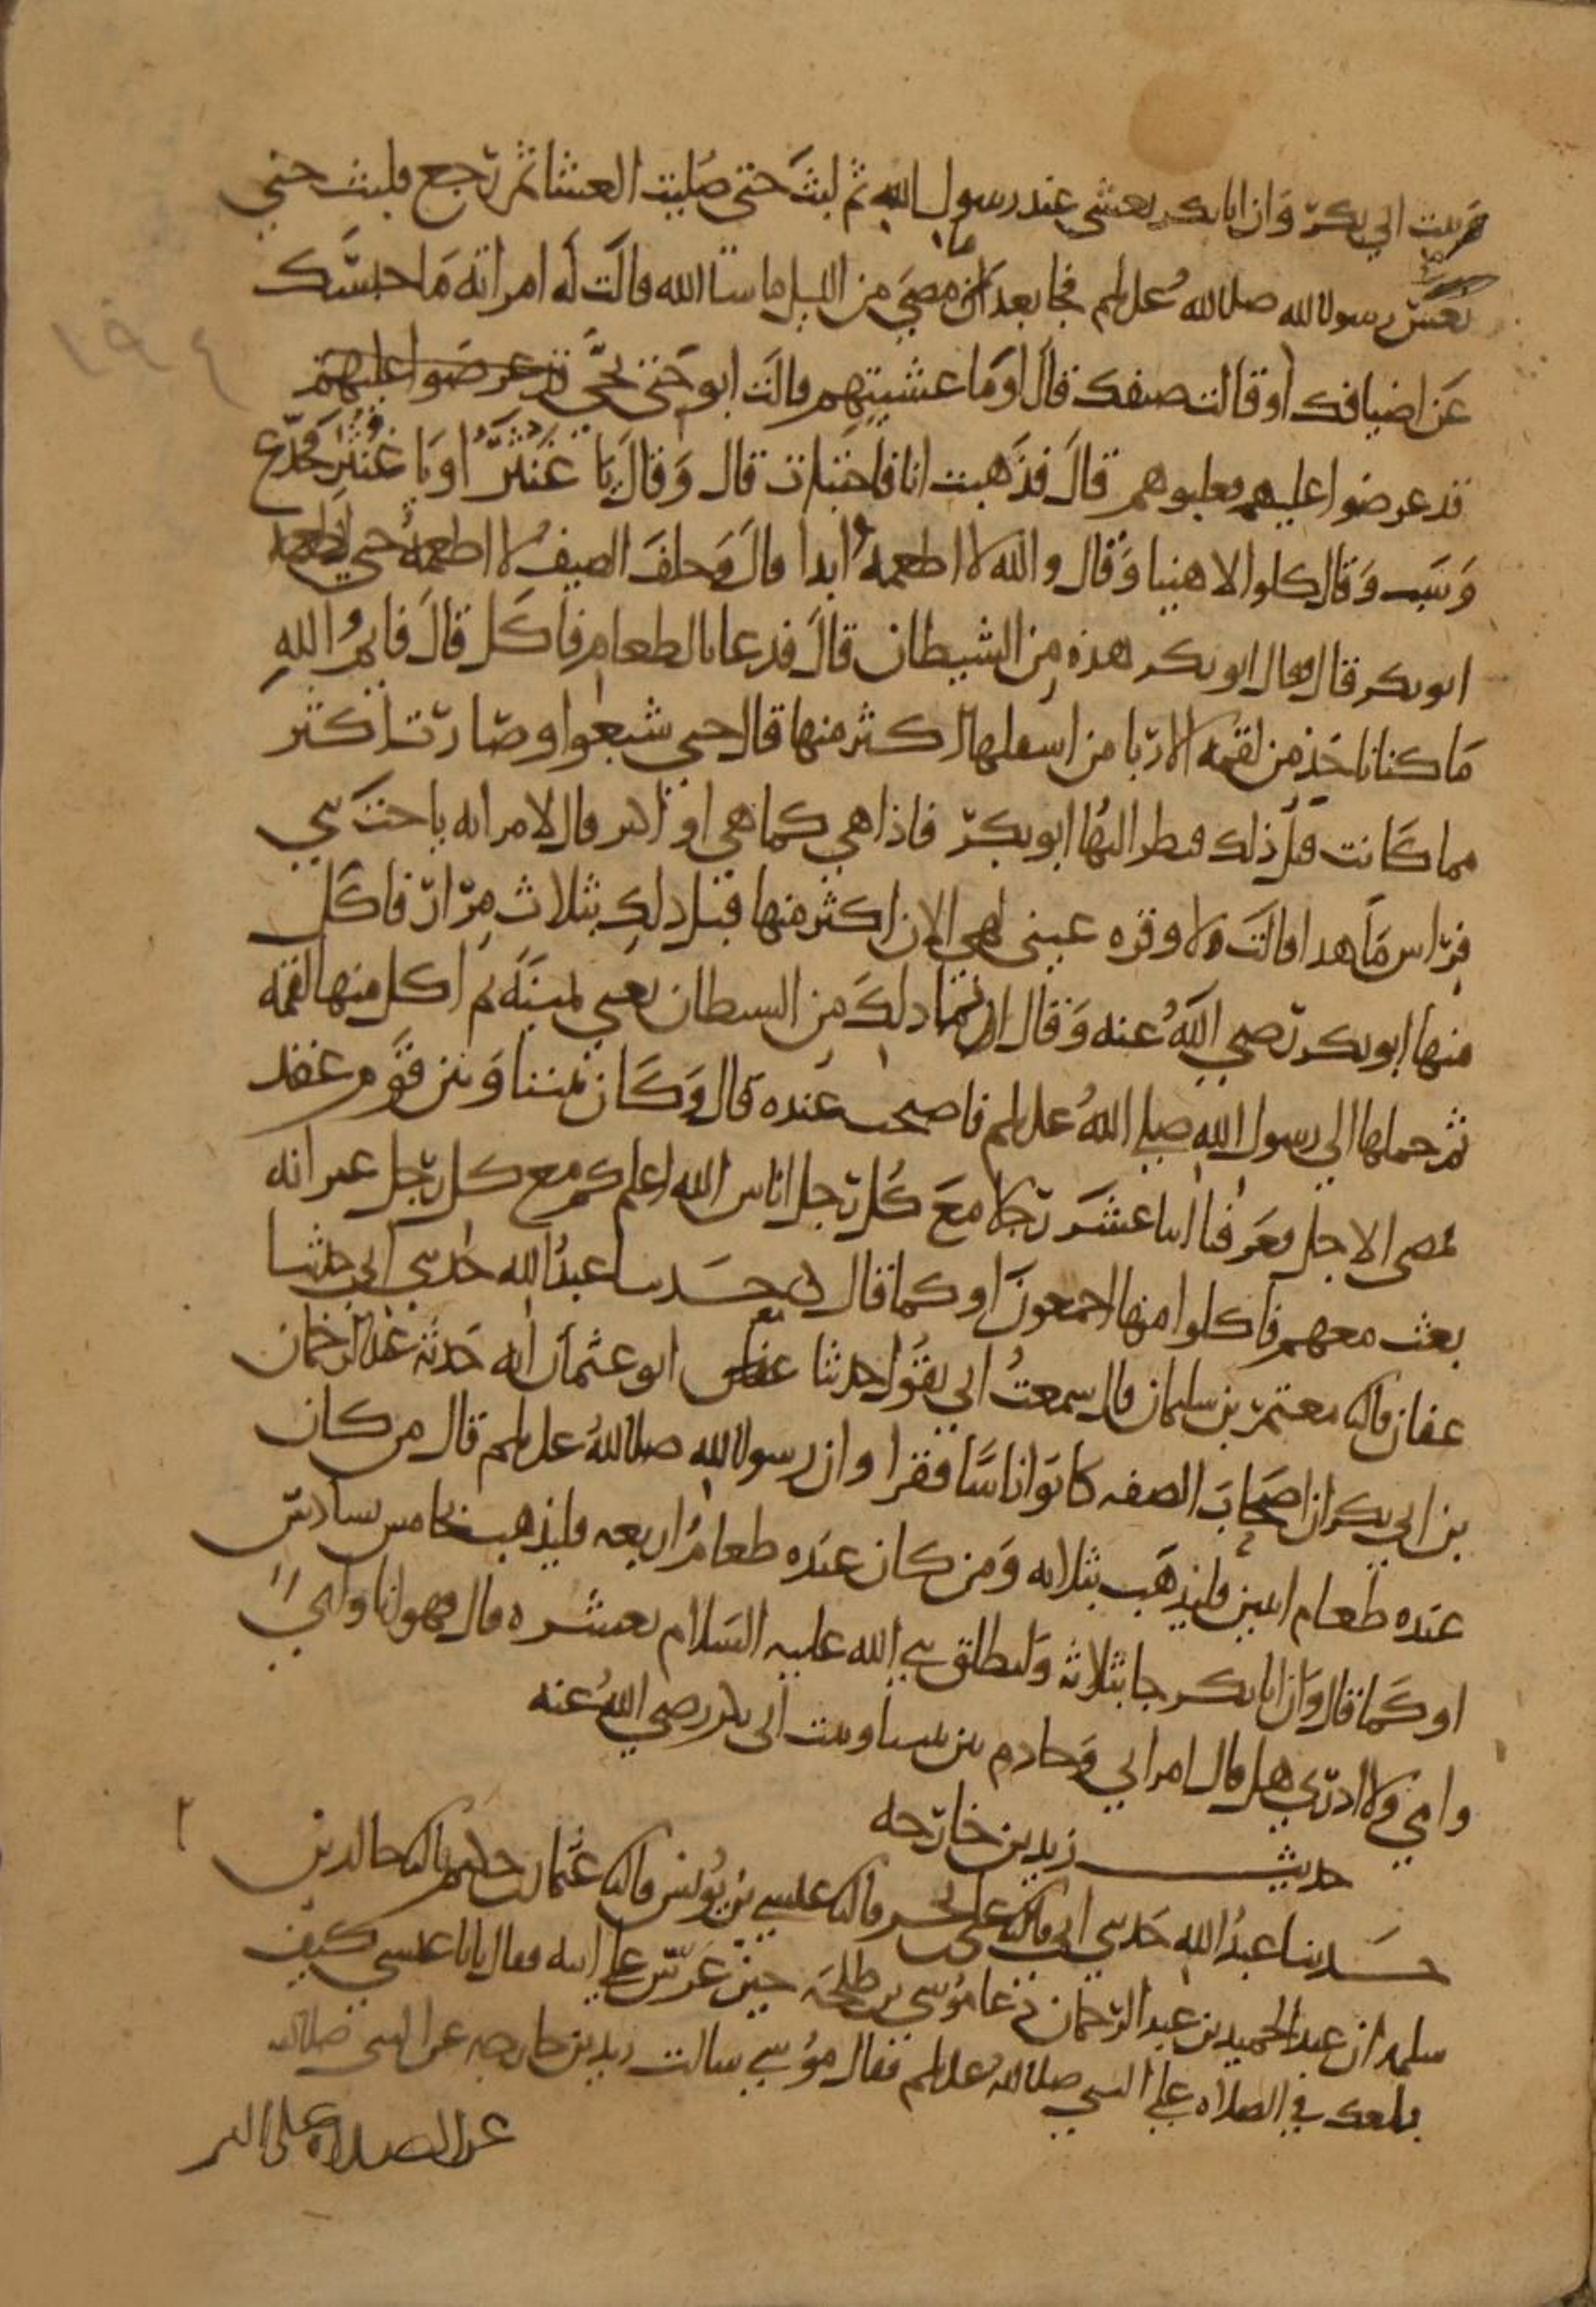 وبيت ابي بكر وان ابا بكر تعشى عند رسول الله ثم لبث حتى صليت العشا ثم رجع فلبث حتى
نعس رسول الله صلى الله عليه وسلم فجا بعد ما مضى من الليل ما شا الله قالت له امراته ما حبسك
عن اضيافك او قالت ضيفك قال او ما عشيتهم قالت ابو حتى تجي قد عرضوا عليهم
قد عرضوا عليهم فغلبوهم قال فذهبت انا فاختبات قال وقال يا غنثر او يا غنثر فجدع
وسب وقال كلوا لا هنيا وقال والله لا اطعمه ابدا قال وحلف الضيف لا اطعمه حتى يطعمه
ابو بكر قال فقال ابو بكر هذه من الشيطان قال فدعا بالطعام فاكل قال فايم الله
ما كنا ناخذ من لقمه الا ربا من اسفلها اكثر منها قال حتى شبعوا وصارت اكثر
مما كانت قبل ذلك فنظر اليها ابو بكر فاذا هي كما هي او اكثر قال لامراته يا اخت بني
فراس ما هذا قالت لا وقره عيني لهي الان اكثر منها قبل ذلك بثلاث مرار فاكل
منها ابو بكر رضي الله عنه وقال انما ذلك من الشيطان يعني يمينه ثم اكل منها لقمه
ثم حملها الى رسول الله صلى الله عليه وسلم فاصبحت عنده قال وكان بيننا وبين قوم عقد
فمضى الاجل فعرفنا اثنا عشر رجلا مع كل رجل اناس الله اعلم كم مع كل رجل غير انه
بعث معهم فاكلوا منها اجمعون او كما قال حدثنا عبد الله حدثني ابي حدثنا
عفان قال ثنا معتمر بن سليمان قال سمعت ابي يقول حدثنا ابو عثمان انه حدثه عبد الرحمان
بن ابي بكر ان اصحاب الصفه كانوا اناسا فقرا وان رسول الله صلى الله عليه وسلم قال من كان
عنده طعام اثنين فليذهب بثلاثه ومن كان عنده طعام اربعه فليذهب بخامس سادس
او كما قال وان ابا بكر جا بثلاثه وانطلق نبي الله عليه السلام بعشره قال فهو انا وابي
وامي ولا ادري هل قال امراتي وخادم بين بيتنا وبيت ابي بكر رضي الله عنه
حديث زيد بن خارجه
حدثنا عبد الله حدثني ابي قال ثنا علي بن بحر قال ثنا عيسى بن يونس قال ثنا عثمان بن حكيم قال ثنا خالد بن
سلمه ان عبد الحميد بن عبد الرحمان دعا موسى بن طلحه حين عرس على ابنه فقال يا ابا عيسى كيف
بلغك في الصلاه على النبي صلى الله عليه وسلم فقال موسى سالت زيد بن خارجه عن النبي صلى الله
عن الصلاه على النبي
١٩٤